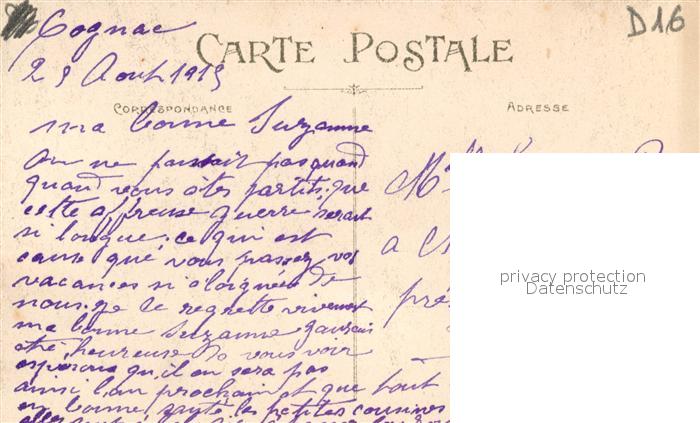 Cognac
D16
CARTE POSTALE
29 Aout 1915
CORRESPONDANCE
ADRESSE
ma bonne Suzanne
On ne pas quand
quand vous êtes partis, que
cette affreuse guerre serait
si longue, ce qui est
cause que vous passez vos
vacances si éloignées de
nous. je le regrette vivement
ma bonne Suzanne j'aurais
été heureuse de vous voir
esperons qu'il en sera pas
ainsi l'an prochain et que tout
en bonne santé les petites cousines
M
a
pré
privacy protection
Datenschutz